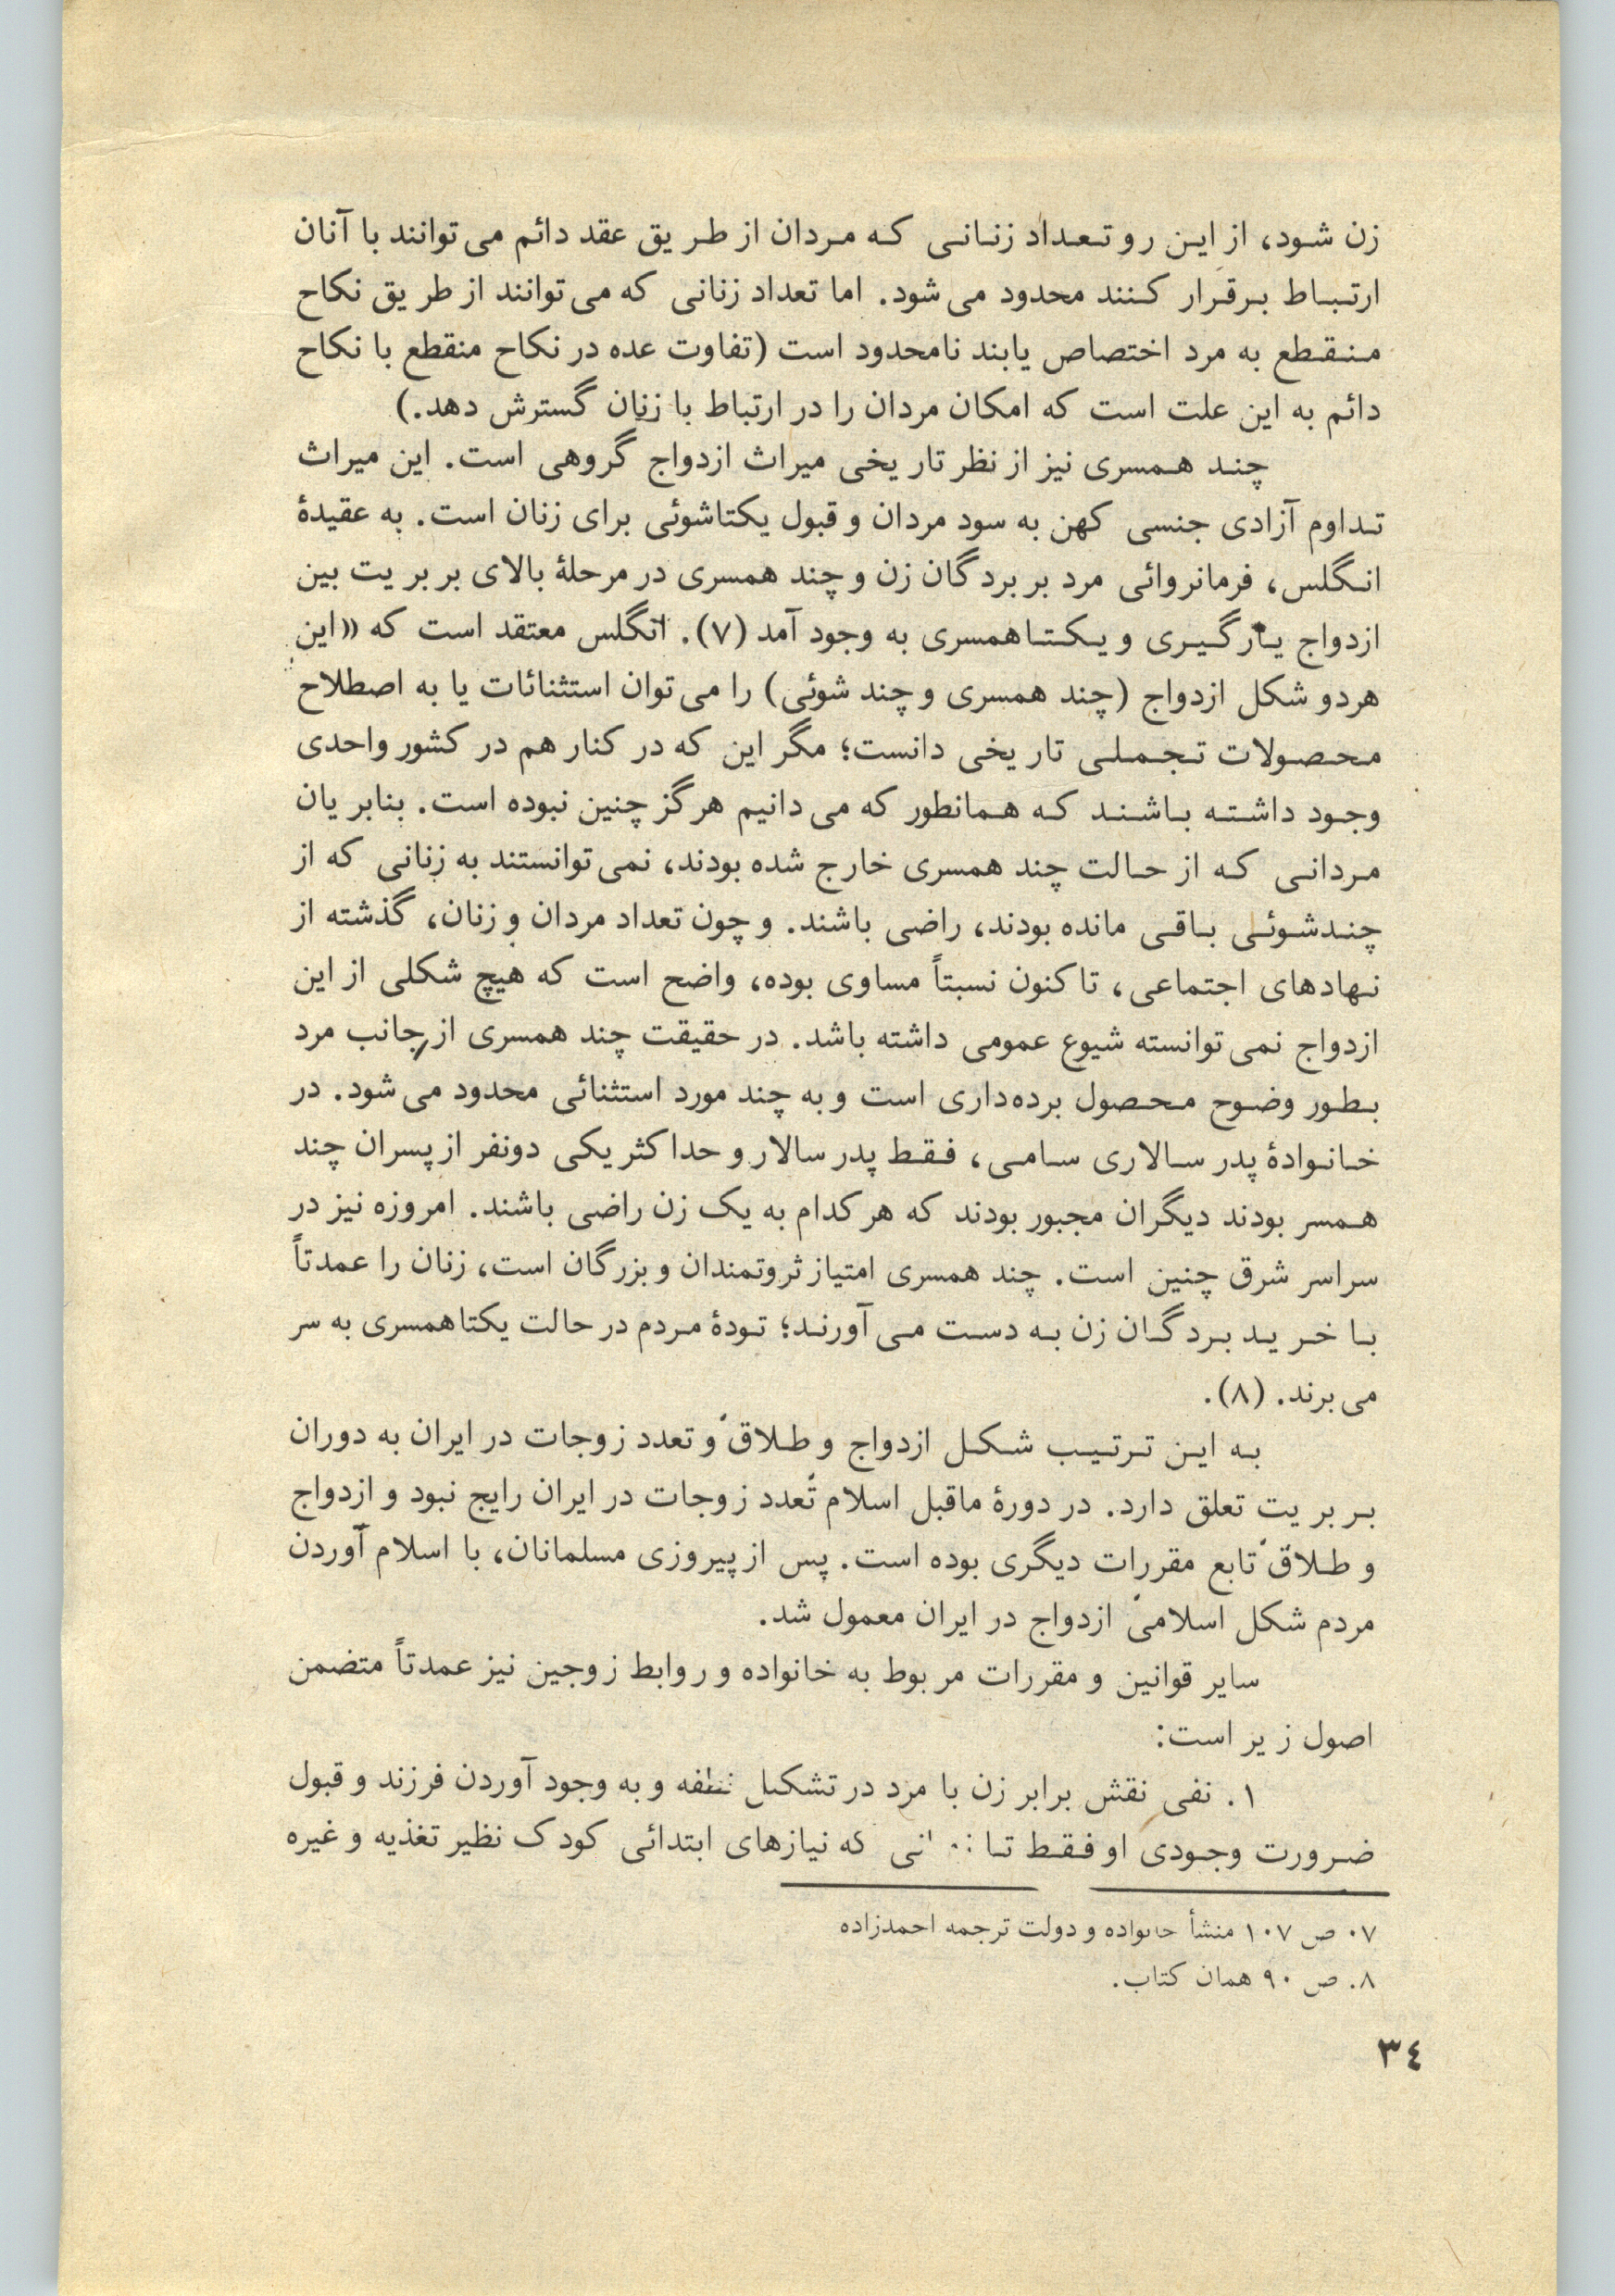 زن شود، از این رو تعداد زنانی که مردان از طریق عقد دائم می‌توانند با آنان
ارتباط برقرار کنند محدود می‌شود. اما تعداد زنانی که می‌توانند از طریق نکاح
منقطع به مرد اختصاص یابند نامحدود است (تفاوت عده در نکاح منقطع با نکاح
دائم به این علت است که امکان مردان را در ارتباط با زنان گسترش دهد.)
چند همسری نیز از نظر تاریخی میراث ازدواج گروهی است. این میراث
تداوم آزادی جنسی کهن به سود مردان و قبول یکتاشوئی برای زنان است. به عقیدهٔ
انگلس، فرمانروائی مرد بر بردگان زن و چند همسری در مرحلهٔ بالای بربریت بین
ازدواج یارگیری و یکتاهمسری به وجود آمد (۷). انگلس معتقد است که «این
هردو شکل ازدواج (چند همسری و چند شوئی) را می‌توان استثنائات یا به اصطلاح
محصولات تجملی تاریخی دانست؛ مگر این که در کنار هم در کشور واحدی
وجود داشته باشند که همانطور که می‌دانیم هرگز چنین نبوده است. بنابریان
مردانی که از حالت چند همسری خارج شده بودند، نمی‌توانستند به زنانی که از
چندشوئی باقی مانده بودند، راضی باشند. و چون تعداد مردان و زنان، گذشته از
نهادهای اجتماعی، تا کنون نسبتاً مساوی بوده، واضح است که هیچ شکلی از این
ازدواج نمی‌توانسته شیوع عمومی داشته باشد. در حقیقت چند همسری از جانب مرد
بطور وضوح محصول برده‌داری است و به چند مورد استثنائی محدود می‌شود. در
خانوادهٔ پدر سالاری سامی، فقط پدر سالار و حداکثر یکی دونفر از پسران چند
همسر بودند دیگران مجبور بودند که هر کدام به یک زن راضی باشند. امروزه نیز در
سراسر شرق چنین است. چند همسری امتیاز ثروتمندان و بزرگان است، زنان را عمدتاً
با خرید بردگان زن به دست می‌آورند؛ تودهٔ مردم در حالت یکتاهمسری به سر
می‌برند. (۸).
به این ترتیب شکل ازدواج و طلاق و تعدد زوجات در ایران به دوران
بربریت تعلق دارد. در دورهٔ ماقبل اسلام تعدد زوجات در ایران رایج نبود و ازدواج
و طلاق تابع مقررات دیگری بوده است. پس از پیروزی مسلمانان، با اسلام آوردن
مردم شکل اسلامی ازدواج در ایران معمول شد.
سایر قوانین و مقررات مربوط به خانواده و روابط زوجین نیز عمدتاً متضمن
اصول زیر است:
۱. نفی نقش برابر زن با مرد در تشکیل نطفه و به وجود آوردن فرزند و قبول
ضرورت وجودی او فقط تا که نیازهای ابتدائی کودک نظیر تغذیه و غیره
۷. ص ۱۰۷ منشأ خانواده و دولت ترجمه احمدزاده
۸. ص ۹۰ همان کتاب.
۳٤